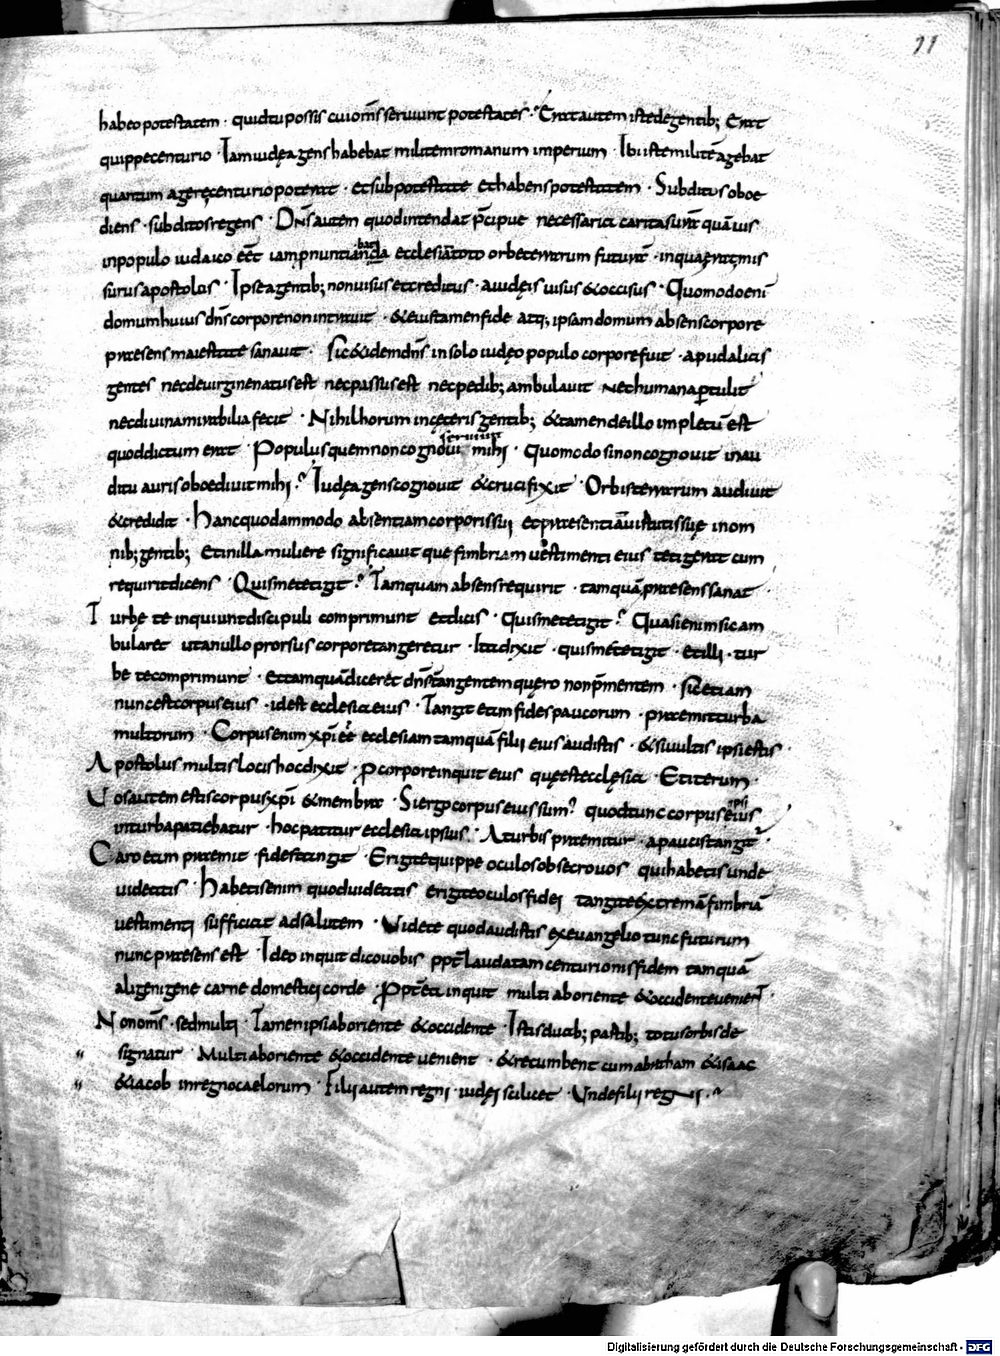 11
habeo potestatem · quid tu possis cui om̄s seruiunt potestates · Erat autem iste de gentib; Erat
quippe centurio · Iam iudęa gens habebat militem romanum imperium · Ibi iste militē agebat
quantum agere centurio poterat · et sub potestate et habens potestatem · Subditus oboe
diens · subditos regens · Dn̄s autem quod intendat p̄cipue necessaria caritas ur̄a quāuis
in populo iudaico eēt iam pnuntiabat ecclesiā in toto orbe terrarum futurā · in quā erat mis
surus apostolos · Ipse a gentib; non uisus et creditus · a iudęis uisus & occisus · Quomodo enī
domum huius dn̄s corpore non intrauit · & eius tamen fide atq; ipsam domum absens corpore
praesens maiestate sanauit · sic & idem dn̄s in solo iudęo populo corpore fuit · apud alias
gentes nec de uirgine natus est nec passus est nec pedib; ambulauit nec humana ptulit
nec diuina mirabilia fecit · Nihil horum in cęteris gentib; & tamen de illo impletū est
quod dictum erat · Populus quem non cognoui seruiuit mihi · Quomodo si non cognouit in au
ditu auris oboediuit mihi ? Iudęa gens cognouit & crucifixit · Orbis terrarum audiuit
& credidit · Hanc quodammodo absentiam corporis sui et praesentiā uirtutis suę in om
nib; gentib; Et in illa muliere significauit que fimbriam uestimenti eius tetigerat cum
requirit dicens · Quis me tetigit ? Tamquam absens requirit · tamquā praesens sanat
Turbę te inquiunt discipuli comprimunt et dicis · Quis me tetigit ? Quasi enim sic am
bularet ut a nullo prorsus corpore tangeretur · Ita dixit · quis me tetigit · et illi · tur
be te comprimunt · Et tamquā diceret dn̄s tangentem quęro non pmentem · sic etiam
nunc est corpus eius · id est ecclesia eius · Tangit eam fides paucorum · praemit turba
multorum · Corpus enim xp̄i eē ecclesiam tamquā filii eius audistis · & si uultis ipsi estis ·
Apostolus multis locis hoc dixit · p corpore inquit eius quę est ecclęsia · Et iterum ·
Vos autem estis corpus xp̄i & membra · Si ergo corpus eius sum ? quod tunc corpus eius ipsi
in turba patiebatur · hoc patitur ecclesia ipsius · A turbis praemitur · a paucis tangit
Caro eam praemit · fides tangit · Erigite quippe oculos obsecro uos qui habetis unde
uideatis · Habetis enim quod uideatis erigite oculos fidei tangite extremā fimbriā
uestimenti sufficiat ad salutem · Videte quod audistis ex euangelio tunc futurum
nunc praesens est · Ideo inquit dico uobis ppt̄ laudatam centurionis fidem tamquā
alienigene carne domestici corde · Ppt̄ea inquit multi ab oriente & occidente uenient ·
Non om̄s · sed multi · Tamen ipsi ab oriente & occidente · Istis duab; partib; totus orbis de
signatur · Multi ab oriente & occidente uenient · & recumbent cum abraham & isaac
& iacob in regno caelorum · Filii autem regni · iudęi scilicet · Vnde filii regni ?
Digitalisierung gefördert durch die Deutsche Forschungsgemeinschaft - DFG